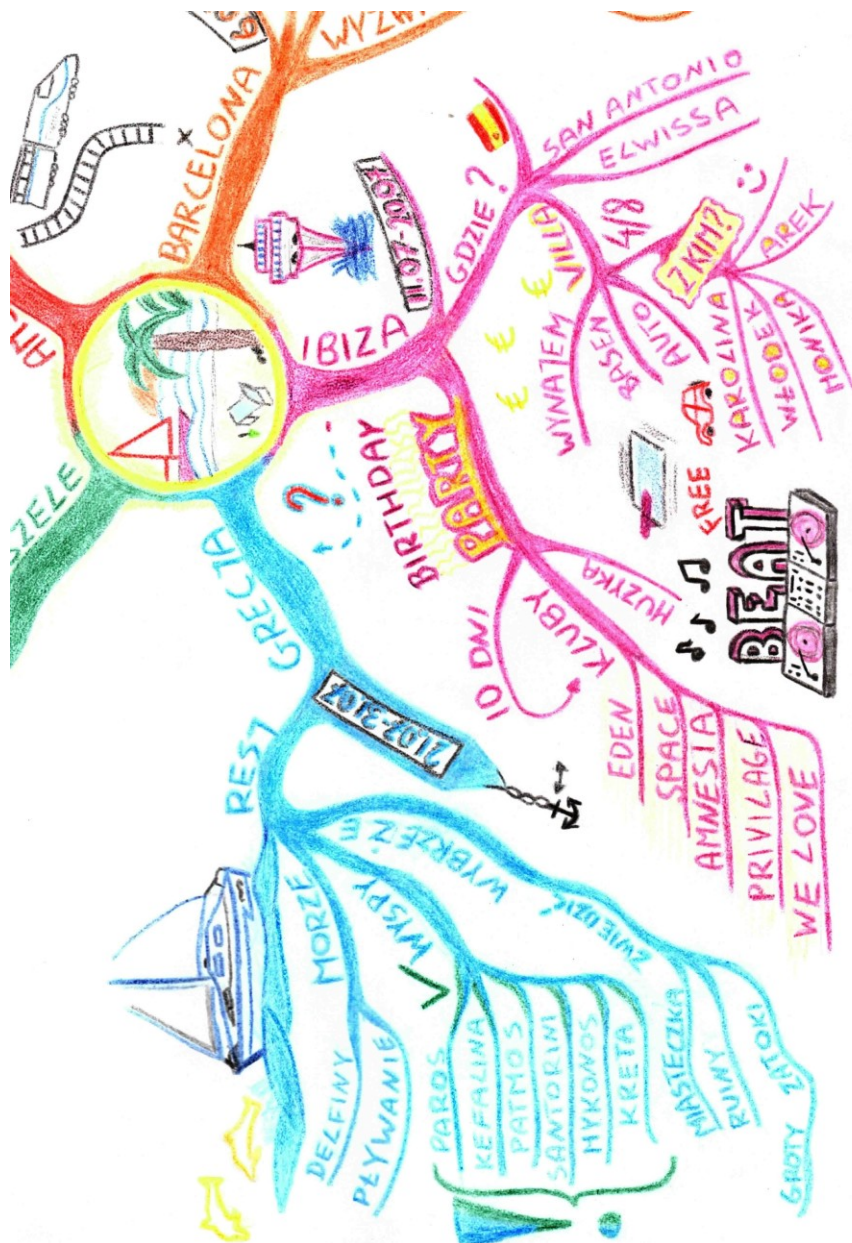 BARCELONA
WYZW
SZELE
IBIZA
11.07-20.07
GDZIE?
SAN ANTONIO
ELWISSA
VILLA
4/8
WYNAJEM
BASEN
AUTO
Z KIM?
AREK
MONIKA
WŁODEK
KAROLINA
€ € € €
BIRTHDAY
PARTY
10 DNI
KLUBY
MUZYKA
FREE
BEAT
EDEN
SPACE
AMNESIA
PRIVILAGE
WE LOVE
?
GRECJA
21.07-31.07
REJS
MORZE
DELFINY
PŁYWANIE
WYSPY
PAROS
KEFALINA
PATMOS
SANTORINI
MYKONOS
KRETA
!
WYBRZEŻE
ZWIEDZIĆ
MIASTECZKA
RUINY
GROTY ZATOKI